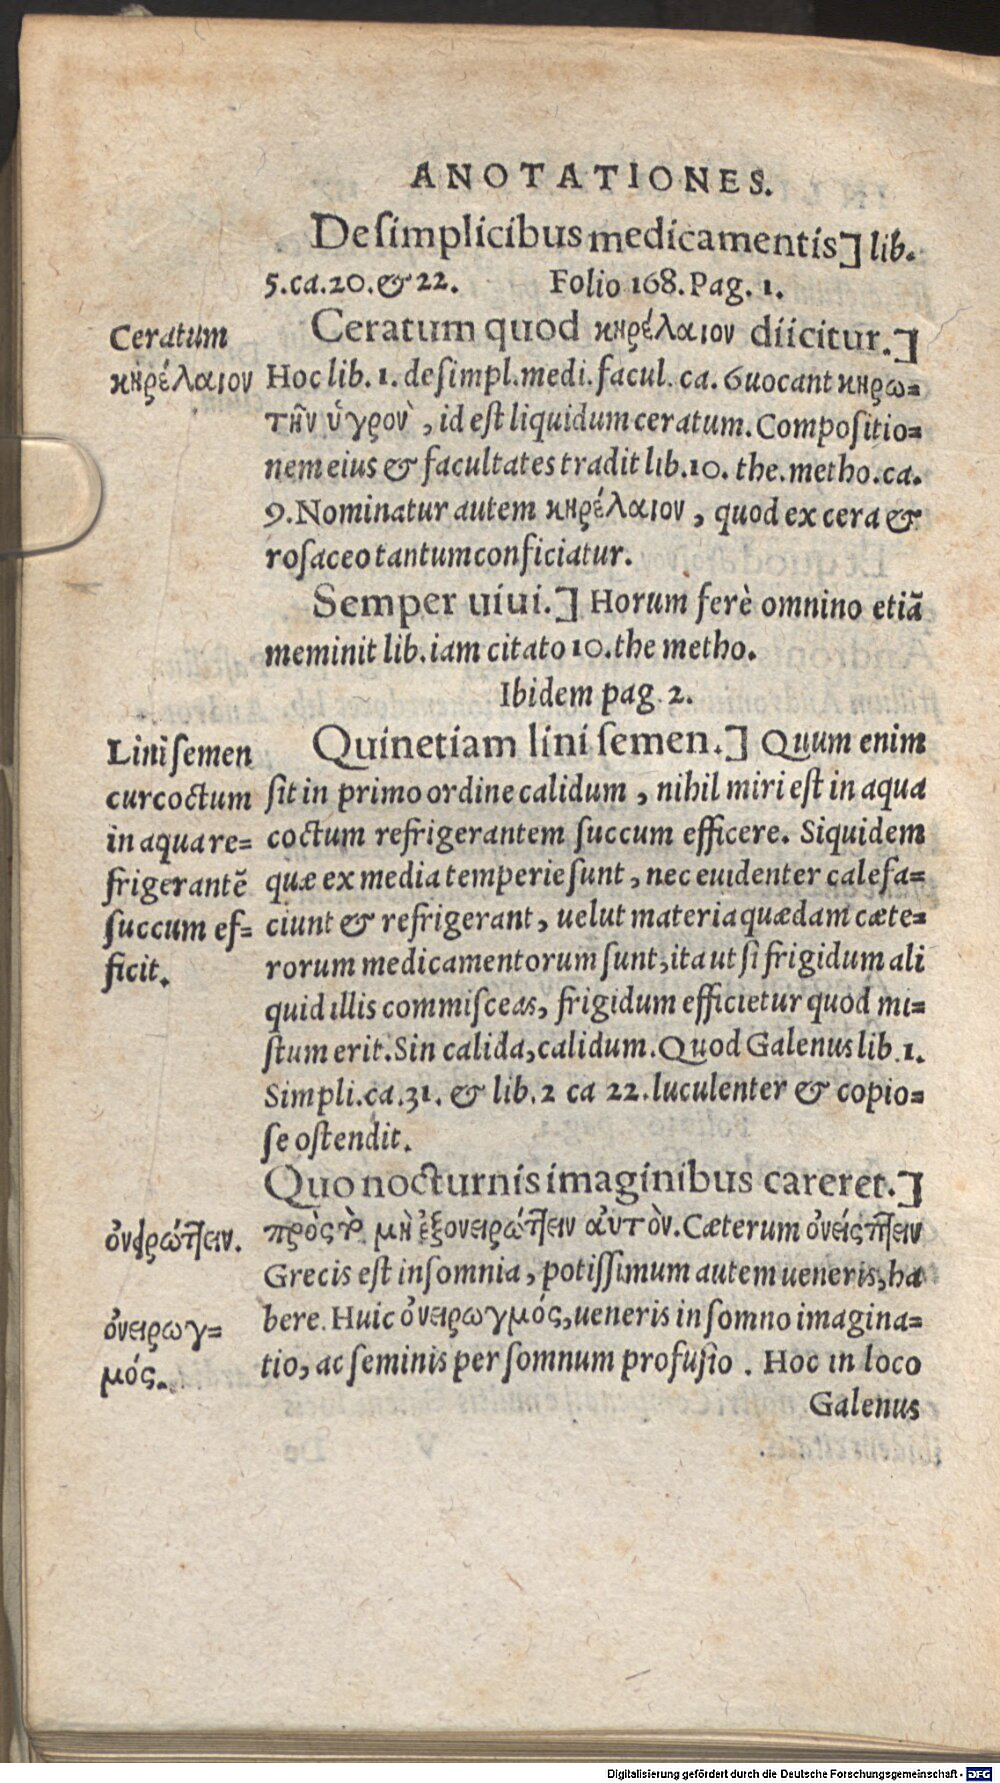 ANOTATIONES.
De simplicibus medicamentis] lib.
5. ca. 20. & 22. Folio 168. Pag. 1.
Ceratum quod κηρέλαιον diicitur.]
Ceratum
κηρέλαιον
Hoc lib. 1. de simpl. medi. facul. ca. 6 uocant κηρω=
τὴν ὑγρον̀, id est liquidum ceratum. Compositio=
nem eius & facultates tradit lib. 10. the. metho. ca.
9. Nominatur autem κηρέλαιον, quod ex cera &
rosaceo tantum conficiatur.
Semper uiui.] Horum ferè omnino etiã
meminit lib. iam citato 10. the metho.
Ibidem pag. 2.
Quinetiam lini semen.] Quum enim
Lini semen
curcoctum
in aqua re=
frigerantẽ
succum ef=
ficit.
sit in primo ordine calidum, nihil miri est in aqua
coctum refrigerantem succum efficere. Siquidem
quæ ex media temperie sunt, nec euidenter calefa=
ciunt & refrigerant, uelut materia quædam cæte=
rorum medicamentorum sunt, ita ut si frigidum ali
quid illis commisceas, frigidum efficietur quod mi=
stum erit. Sin calida, calidum. Quod Galenus lib. 1.
Simpli. ca. 31. & lib. 2 ca 22. luculenter & copio=
se ostendit.
Quo nocturnis imaginibus careret.]
πρὸς τὸ μὴ ἐξονειρώττειν αὐτὸν. Cæterum
Grecis est insomnia, potissimum autem ueneris, ha
bere. Huic ὀνειρωγμός, ueneris in somno imagina=
ὀνειρωγ=
μός.
tio, ac seminis per somnum profusio. Hoc in loco
Galenus
Digitalisierung gefördert durch die Deutsche Forschungsgemeinschaft - DFG